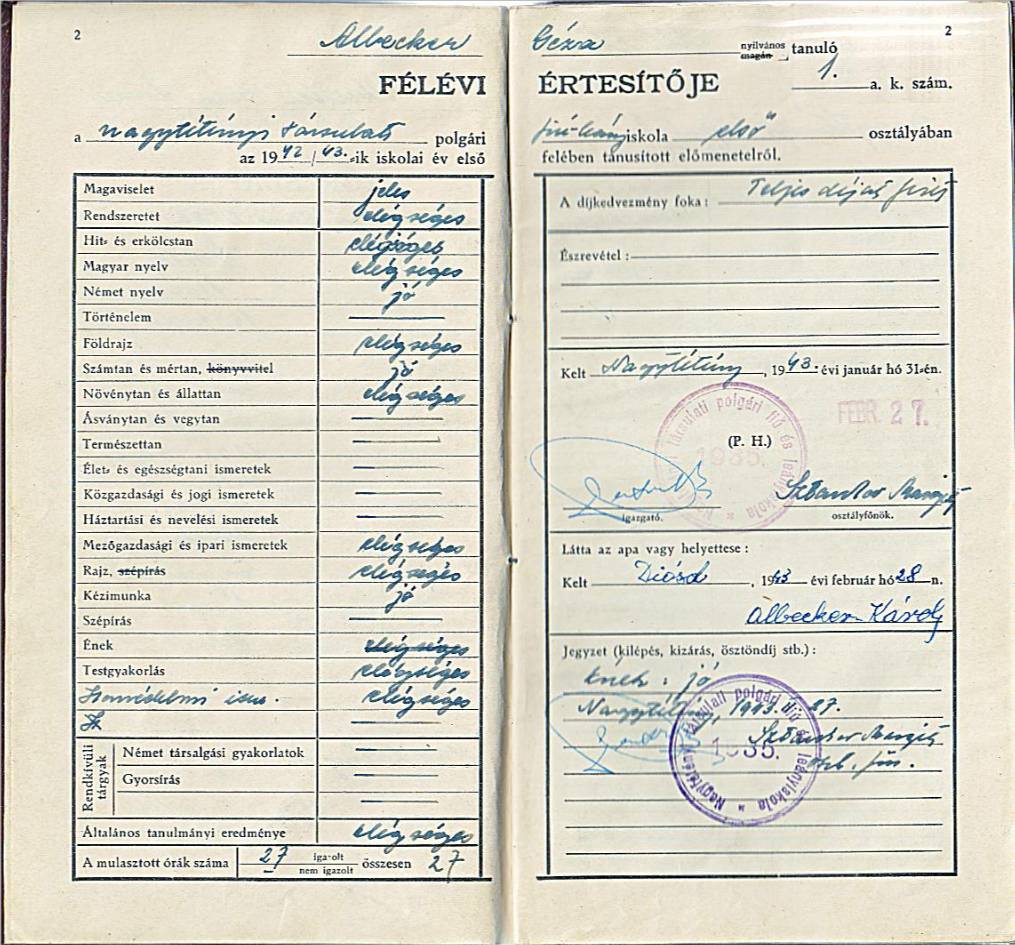 2
Albecker
FÉLÉVI
a nagytétényi társulati polgári
az 1942/43.-ik iskolai év első
Magaviselet jeles
Rendszeretet elégséges
Hit- és erkölcstan elégséges
Magyar nyelv elégséges
Német nyelv jó
Történelem
Földrajz elégséges
Számtan és mértan, könyvvitel jó
Növénytan és állattan elégséges
Ásványtan és vegytan
Természettan
Élet- és egészségtani ismeretek
Közgazdasági és jogi ismeretek
Háztartási és nevelési ismeretek
Mezőgazdasági és ipari ismeretek elégséges
Rajz, szépírás elégséges
Kézimunka jó
Szépírás
Ének elégséges
Testgyakorlás elégséges
Honvédelmi ism. elégséges
Rendkívüli tárgyak
Német társalgási gyakorlatok
Gyorsírás
Általános tanulmányi eredménye elégséges
A mulasztott órák száma 27 igazolt nem igazolt összesen 27
2
Géza nyilvános magán tanuló
1. a. k. szám.
ÉRTESÍTŐJE
fiú-leányiskola első osztályában
felében tanusított előmenetelről.
A díjkedvezmény foka: Teljes díjat fizet
Észrevétel:
Kelt Nagytétény, 1943. évi január hó 31-én.
FEBR 27.
(P. H.)
társulati polgári fiú és leányiskola
1935.
igazgató.
Sztankor Margit
osztályfőnök.
Látta az apa vagy helyettese:
Kelt Diósd, 1943 évi február hó 28-n.
Albecker Károly
Jegyzet (kilépés, kizárás, ösztöndíj stb.):
Ének: jó
Nagytétény, 1943. 27.
Sztankor Margit
Nagytétényi társulati polgári fiú és leányiskola
1935.